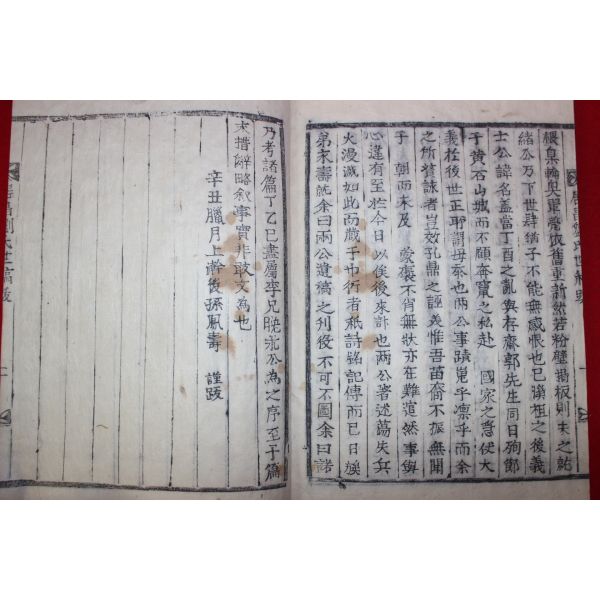 榥臬輪奐單營依舊重新然若粉壁揭板則未之就
緖公乃下世肆猶子不能無感恨也已謨祖之後義
士公諱名盖當丁酉之亂與存齋郭先生同日殉節
于黃石山城而不顧奔竄之私赴 國家之急伏大
義於後世正耶謂毋忝也兩公事蹟嵬乎凛乎而余
之所贊詠者豈效孔鼎之誣美惟吾苗裔不振無聞
于 朝而未及 蒙褒不肖無狀亦在難逭然事與
心違有至於今日以俟後來許也兩公著述蕩失兵
火漫滅如此而歲于巾衍者秖詩銘記傳而已日族
弟家壽就余曰兩公遺稿之刊役不可不圖余曰諸
乃考諸篇丁乙已盡屬李兄曉光公爲之序至于篇
末措辭略叙事實非敢文爲也
辛丑臘月上澣後孫鳳壽 謹跋
居昌劉氏世稿跋